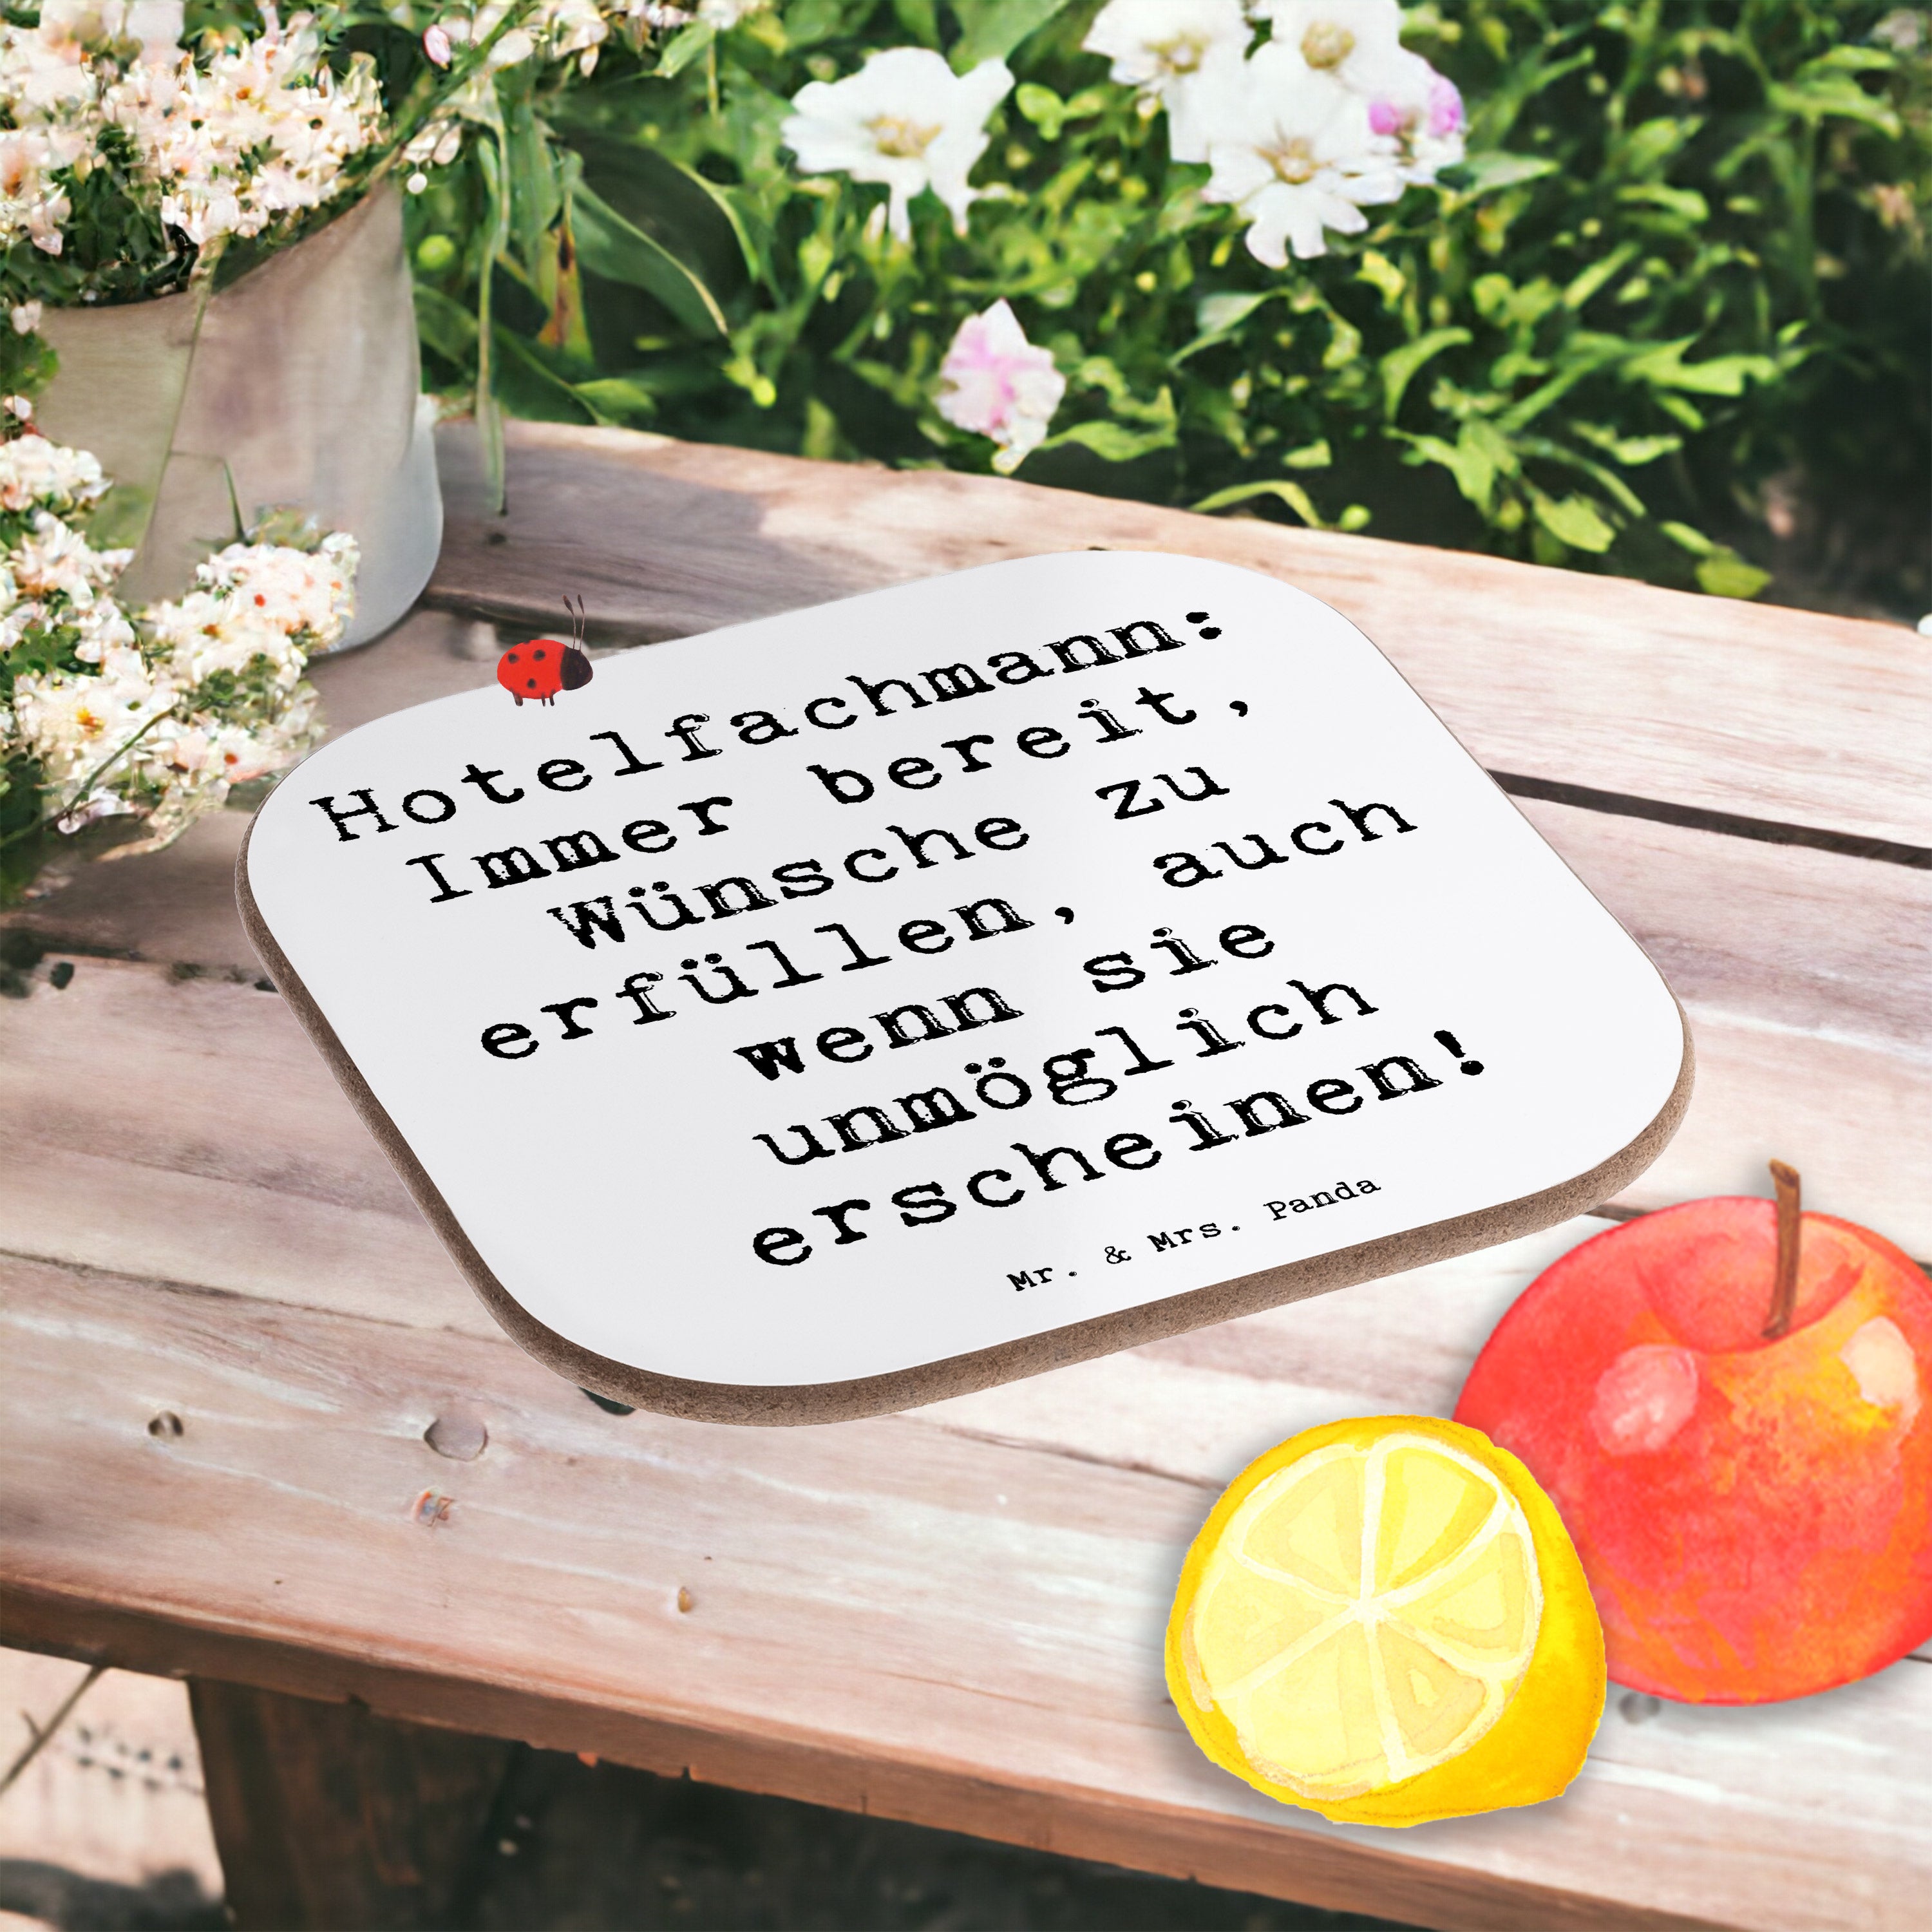 Hotelfachmann:
Immer bereit,
Wünsche zu
erfüllen, auch
wenn sie
unmöglich
erscheinen!
Mr. & Mrs. Panda